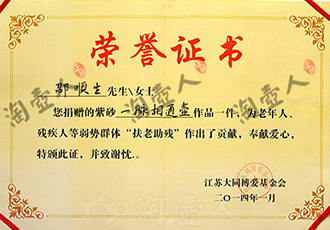 荣誉证书
邵顺生 先生\女士
您捐赠的紫砂一脉相通壶作品一件，为老年人、
残疾人等弱势群体“扶老助残”作出了贡献，奉献爱心，
特颁此证，并致谢忱。
江苏大同博爱基金会
二〇一四年一月
淘壶人
淘壶人
淘壶人